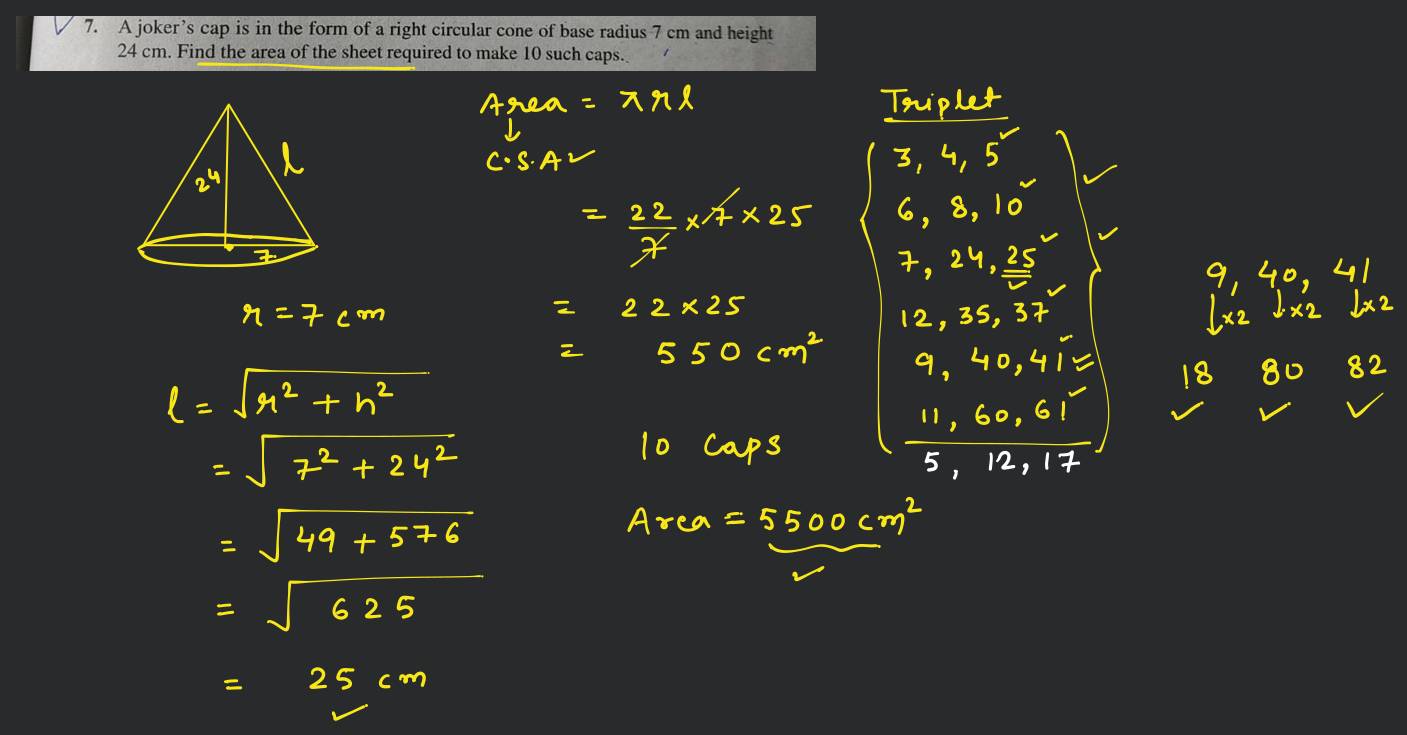 7. A joker's cap is in the form of a right circular cone of base radius 7 cm and height
24 cm. Find the area of the sheet required to make 10 such caps.
24
l
7
r = 7 cm
l = √r² + h²
= √7² + 24²
= √49 + 576
= √625
= 25 cm
Area = πrl
↓
C.S.A
= 22/7 × 7 × 25
= 22 × 25
= 550 cm²
10 caps
Area = 5500 cm²
Triplet
3, 4, 5
6, 8, 10
7, 24, 25
12, 35, 37
9, 40, 41
11, 60, 61
5, 12, 17
9, 40, 41
↓×2 ↓×2 ↓×2
18 80 82